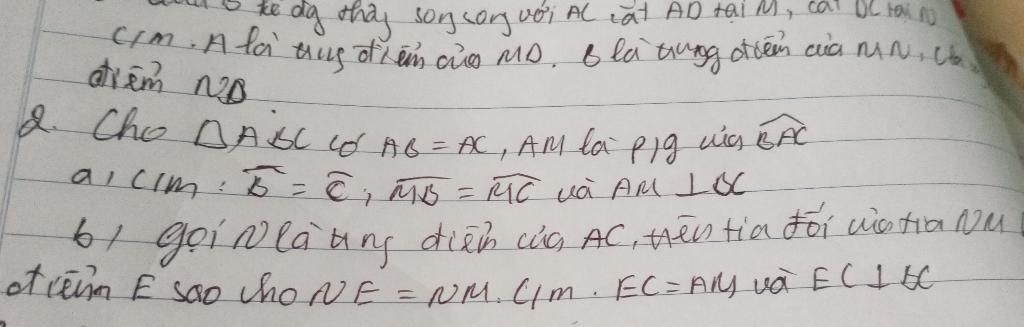 kẻ đg thẳng song song với AC cắt AD tại M, cắt DC tại N
C/m: A là trung điểm của MD. B là trung điểm của MN, C là
điểm ND
2. Cho △ABC có AB = AC, AM là p/g của BAC
a, C/m: B = C, MB = MC và AM ⊥ BC
b, gọi N là trung điểm của AC, trên tia đối của tia NM
điểm E sao cho NE = NM. C/m. EC = AM và EC ⊥ BC